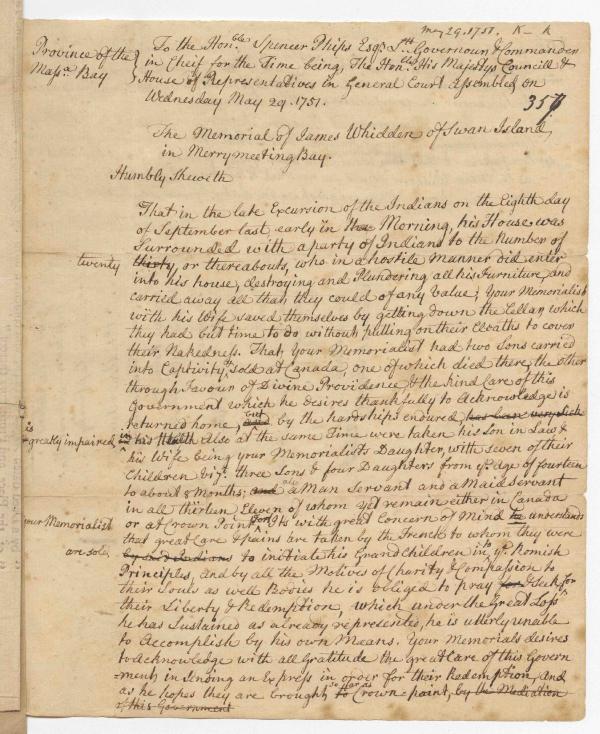 May 29. 1751. K - k
Province of the
Massa. Bay
To the Honble Spencer Phips Esqr. Lt. Governour & Commander
in Cheif for the Time being, The Honble. His Majestys Councill &
House of Representatives in General Court Assembled on
Wednesday May 29. 1751.
357
The Memorial of James Whidden of Swan Island
in Merrymeeting Bay.
Humbly Sheweth
That in the late Excursion of the Indians on the Eighth day
of September last, early in the Morning, his House was
Surrounded with a party of Indians to the Number of
twenty thirty or thereabouts, who in a hostile manner did enter
into his house, destroying and Plundering all his Furniture, and
carried away all that they could of any Value; Your Memorialist
with his Wife saved themselves by getting down the Cellar, which
they had but time to do without pulling on their Cloaths to cover
their Nakedness. That Your Memorialist had two Sons carried
into Captivity & sold at Canada, one of which died there, the other
through Favour of Divine Providence, & the kind Care of this
Government which he desires thankfully to Acknowledge is
returned home, but by the hardships endured,
is greatly impaired in his Health Also at the same Time were taken his Son in Law &
his Wife being your Memorialists Daughter, with seven of their
Children vizt. three Sons & four Daughters from ye. age of fourteen
to about 8 Months; and also a Man Servant and a Maid Servant
in all thirteen Eleven of whom yet remain either in Canada
or at Crown Point, It is with great Concern of Mind he understands
that great Care & pains are taken by the French to whom they were
your Memorialist
are sold, by said Indians to initiate his Grandchildren in to ye. Romish
Principles, And by all the Motives of Charity & Compassion to
their Souls as well Bodies he is obliged to pray for & seek for
their Liberty & Redemption, which under the Great Loss
he has Sustained as already represented, he is utterly unable
to Accomplish by his own Means. Your Memorials desires
to Acknowledge with all Gratitude the great Care of this Govern
=ment in sending an Express in order for their Redemption, and
as he hopes they are brought so far as to Crown=point, by the Mediation
of this Government